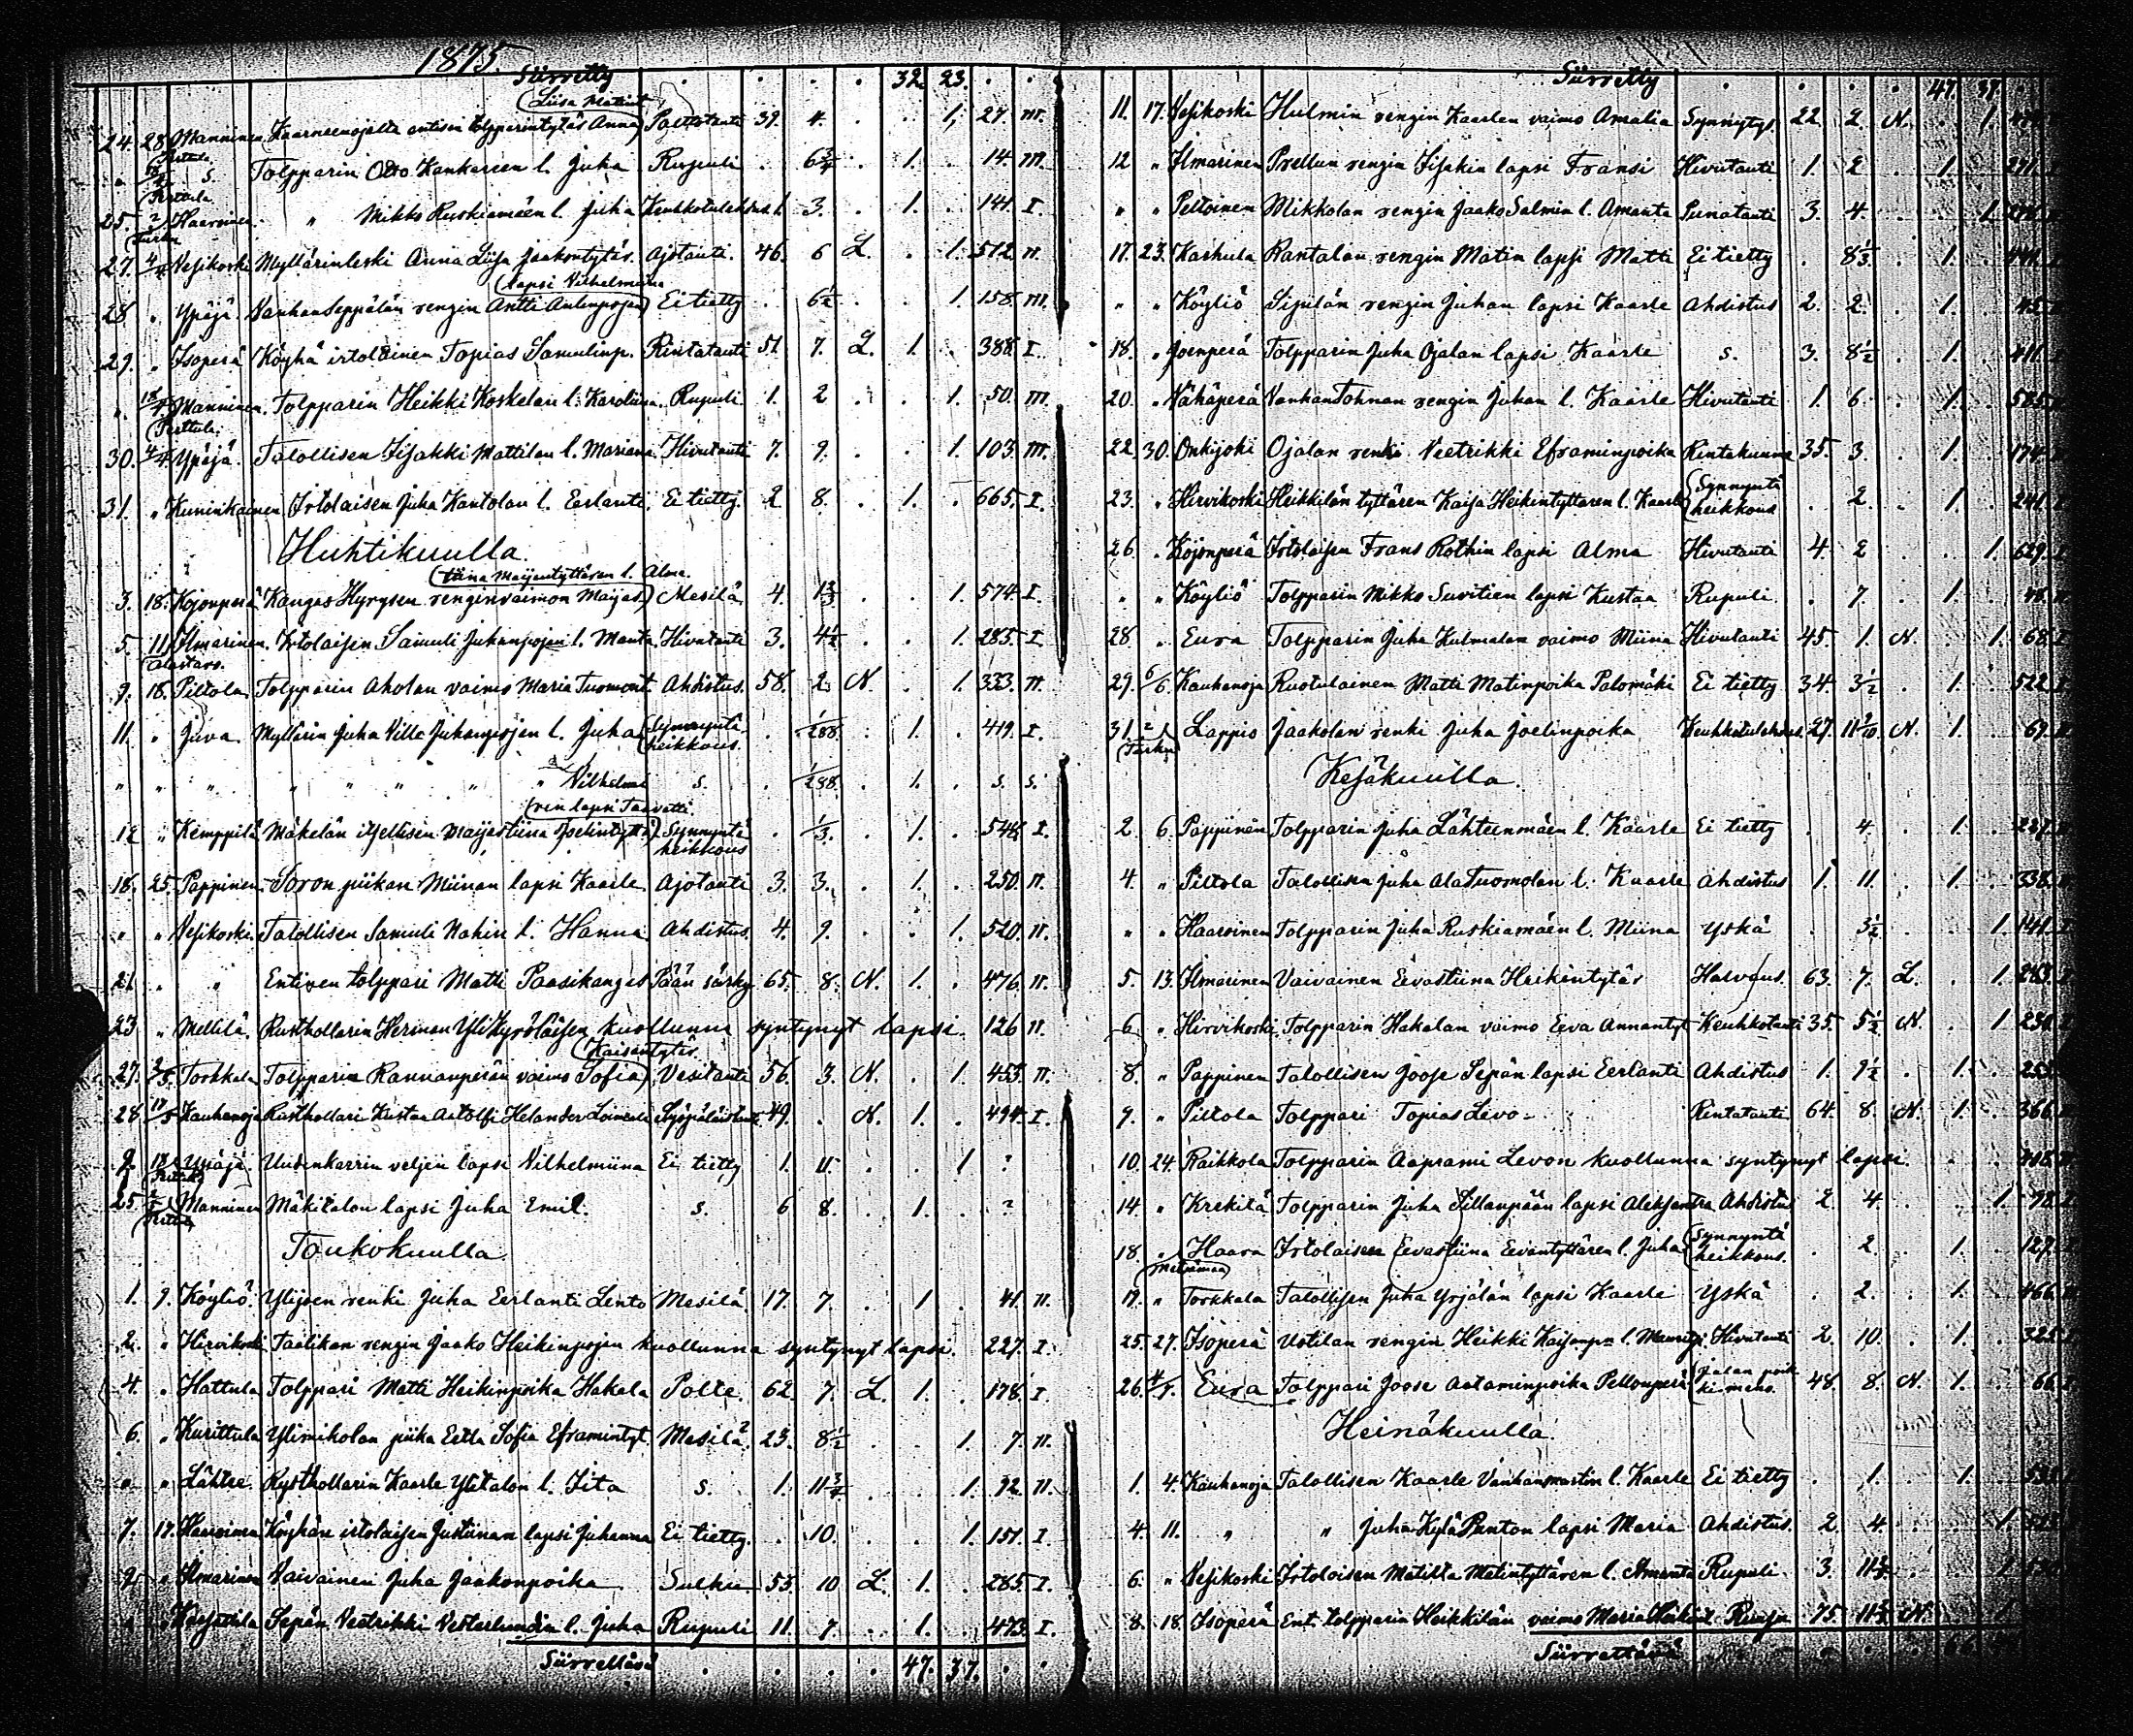 1875.
Siirretty . . . . 32. 23. . .
(Liisa Matint.
24. 28. Manninen Kaarneenojalta entisen tolpparintytär Anna) Polttotauti 39. 4. . . 1. 27. III.
(Perttula.
" S. Tolpparin Otto Kankareen l. Juha Rupuli . 6 3/4 . 1. . 14. III.
(Perttula
25. 2 Haaroinen " Mikko Ruskiamäen l. Juha Keuhkotulehdus. 3. . 1. . 141. I.
(Turku
27. 4/4 Vesikoski Myllärinleski Anna Liisa Jaakontytär. Ajotauti. 46. 6 L. . 1. 512. II.
(lapsi Vilhelmiina
28 " Ypäjä. Vanhanseppälän rengin Antti Antinpojan) Ei tietty . 6 1/2 . . 1. 158. III.
29. " Isoperä Köyhä irtolainen Topias Samulinp. Rintatauti 51. 7. L. 1. . 388. I.
" Manninen. Tolpparin Heikki Koskelan l. Karoliina. Rupuli 1. 2 . . 1. 50. III.
(Perttula.
30. 4/4 Ypäjä. Talollisen Iisakki Mattilan l. Mariana. Hivutauti 7. 9. . . 1. 103. III.
31. " Kuninkainen Irtolaisen Juha Kantolan l. Eerlanti. Ei tietty. 2 8. . 1. . 665. I.
Huhtikuulla.
(tiina Maijantyttären l. Alma.
3. 18. Kojonperä Kangas Hyrysen renginvaimon Maijas) Mesilä 4. 1 1/3 . . 1. 574. I.
5. 11/ Ilmarinen. Irtolaisen Samuli Juhanpojan l. Manta. Hivutauti 3. 4 1/2 . . 1. 285. I.
(Alastaro.
9. 18. Piltola Tolpparin Aholan vaimo Maria Tuomont. Ahdistus. 58. 2. N. . 1. 333. II.
11. " Juva. Myllärin Juha Ville Juhanpojan l. Juha (Synnyntä heikkous. . 1/288. . 1. . 419. I.
" " " " " " " " Vilhelmi s. . 1/288. . 1. . s. s.
(ren lapsi Taavetti
12 " Kemppilä Mäkelän itsellisen Maijastiina Joelintyttä) Synnyntä heikkous . 1/3. . 1. . 548. I.
18. 25. Pappinen Soron piikan Miinan lapsi Kaarle Ajotauti 3. 3. . 1. . 250. II.
" " Vesikoski. Talollisen Samuli Nahin l. Hanna Ahdistus. 4. 9. . . 1. 520. II.
21. " " Entinen tolppari Matti Paasikangas Pään särky 65. 8. N. 1. . 476. II.
23 " Mellilä. Rusthollarin Herman YliHyröläisen kuollunna syntynyt lapsi. 126 II.
(Kaisantytär.
27. 2/5. Torkkala Tolpparin Rannanperän vaimo Sofia) Vesitauti 56. 3. N. . 1. 453. II.
28. 17/5 Kauhanoja Rusthollari Kustaa Aatolfi Helander 49. . N. 1. . 494. I.
9. 18 Ypäjä. Uudenkarrin veljen lapsi Vilhelmiina Ei tietty 1. 11. . . 1 ?
25. Manninen Mäkitalon lapsi Juha Emil. s. 6 8. . 1. . ?
Toukokuulla.
1. 9. Köyliö. Ylijoen renki Juha Eerlanti Lento Mesilä. 17. 7. . 1. . 41. II.
2. " Hirvikoski Taalikan rengin Jaako Heikinpojan kuollunna syntynyt lapsi. 227. I.
4. " Hattula Tolppari Matti Heikinpoika Hakala Polte. 62. 7. L. 1. . 178. I.
6. " Kurittula Ylimiholan piika Eetla Sofia Eframintyt. Mesilä. 23. 8 1/2 . . 1. 7. II.
" " Lähtee Rysthollarin Kaarle Ylitalon l. Iita s. 1. 11 3/4 . . 1. 92. II.
7. 17. Haaroinen Köyhän irtolaisen Justiinan lapsi Juhanna Ei tietty. . 10. . . 1. 151. I.
9. " Ilmarinen Vaivainen Juha Jaakonpoika Sulku 55. 10 L. 1. . 285. I.
" " Sepän Veetrikki Vesterlundin l. Juha Rupuli 11. 7. . 1. . 473. I.
Siirrettävä . . . . 47. 37. . .
Siirretty . . . . 47. 37.
11. 17. Vesikoski Hulmin rengin Kaarlen vaimo Amalia Synnytys. 22. 2. N. . 1.
12 " Ilmarinen Prellun rengin Iisakin lapsi Fransi Hivutauti 1. 2 . 1. . 271.
" " Peltoinen Mikkolan rengin Jaako Salmin l. Amanta Punatauti 3. 4. . . 1.
17. 23. Kaskula Rantalan rengin Matin lapsi Matti Ei tietty . 8 1/3. . 1. . 441.
" " Köyliö Sipilän rengin Juhan lapsi Kaarle Ahdistus 2. 2. . 1. . 45.
18. " Joenperä Tolpparin Juha Ojalan lapsi Kaarle s. 3. 8 1/2 . 1. . 411.
20. " Vähäperä VanhanTohnan rengin Juhan l. Kaarle Hivutauti 1. 6. . 1. . 585.
22. 30. Onkijoki Ojalan renki Veetrikki Eframinpoika Rintakuume 35. 3. . 1. . 174.
23. " Hirvikoski Heikkilän tyttären Kaisa Heikintyttären l. Kaarle (Synnyntä heikkous . 2. . 1. . 241.
26. " Kojonperä Irtolaisen Frans Rothin lapsi Alma Hivutauti 4. 2 . . 1. 629.
" " Köyliö Tolpparin Mikko Suvitien lapsi Kustaa Rupuli . 7. . 1. .
28. " Eura Tolpparin Juha Kulmalan vaimo Miina Hivutauti 45. 1. N. . 1. 68. I
29. 6/6. Kauhanoja Ruotulainen Matti Matinpoika Palomäki Ei tietty 34. 3 1/2 . 1. . 522.
31. 2 Lappio Jaakolan renki Juha Joelinpoika Keuhkotulehdus. 27. 11 9/10. N. 1. . 69.
(Turku)
Kesäkuulla.
2. 6. Pappinen Tolpparin Juha Lähteenmäen l. Kaarle Ei tietty . 4. . 1. . 237.
4. " Piltola Talollisen Juha AlaTuomolan l. Kaarle Ahdistus 1. 11. . 1. . 338.
" " Haaroinen Tolpparin Juha Ruskiamäen l. Miina Yskä . 3 1/2. . . 1. 141.
5. 13. Ilmarinen Vaivainen Eevastiina Heikintytär Halvaus. 63. 7. L. . 1. 283.
6. " Hirvikoski. Tolpparin Hakalan vaimo Eeva Annantyt. Keuhkotauti 35. 5 1/2. N. . 1. 230.
8. " Pappinen Talollisen Joose Sepän lapsi Eerlanti Ahdistus 1. 9 1/2 . 1. . 253.
9. " Piltola Tolppari Topias Levo Rintatauti 64. 8. N. 1. . 366.
10. 24. Raikkola Tolpparin Aaprami Levon kuollunna syntynyt lapsi.
14. " Krekilä Tolpparin Juha Sillanpään lapsi Aleksantra Ahdistus 2. 4. . . 1. 98.
18. " Haara Irtolaisen Eevastiina Eevantyttären l. Juha (Synnyntä heikkous. . 2. . 1. . 127.
(Metsämaa)
19. " Torkkala Talollisen Juha Yrjälän lapsi Kaarle Yskä . 2. . 1. . 466.
25. 27. Isoperä Uotilan rengin Heikki Kaisanp. l. Mauritsi. Hivutauti 2. 10. . 1. . 325.
26. 4/7. Eura Tolppari Joose Aataminpoika Pellonperä (jalan poikki meno. 48. 8. N. 1. . 66.
Heinäkuulla.
1. 4. Kauhanoja Talollisen Kaarle Vanhanmartin l. Kaarle Ei tietty . 1. . 1. .
4. 11. " " Juha KyläPanton lapsi Maria Ahdistus. 2. 4. . . 1.
6. " Vesikoski Irtolaisen Matilta Matintyttären l. Amanta Rupuli. 3. . . 1
8. 18. Isoperä Ent. tolpparin Heikkilän vaimo Maria 75. N. . 1
Siirrettävä 66.